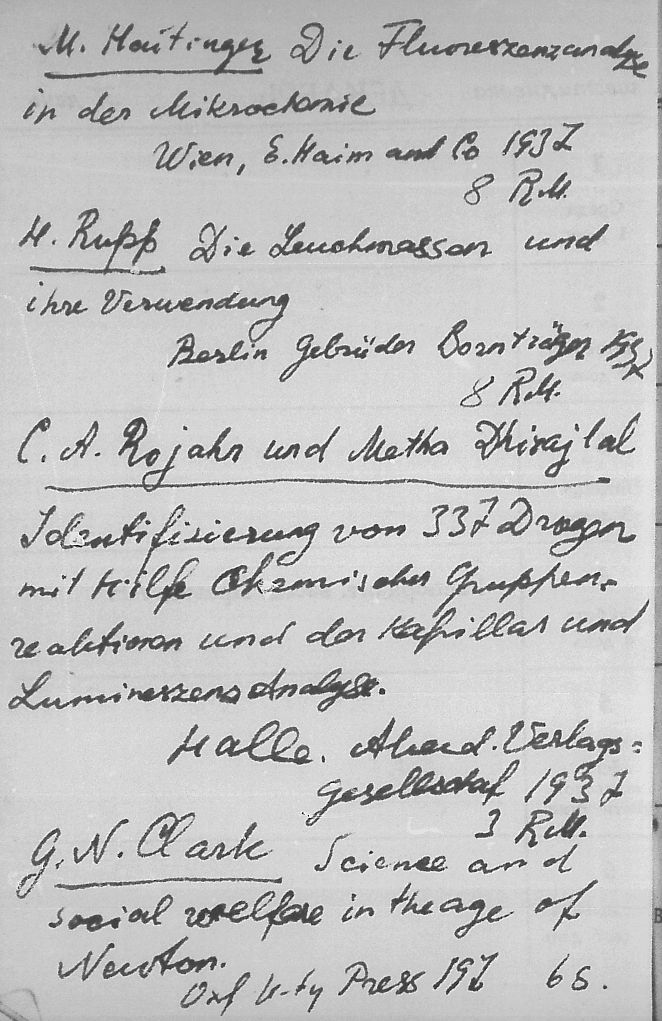 M. Haitinger Die Fluoreszenzanalyse
in der Mikrochemie
Wien, E. Haim and Co 1937
8 R.M.
H. Rupp Die Leuchmassen und
ihre Verwendung
Berlin Gebrüder Bornträger 1937
8 R.M.
C. A. Rojahn und Metha Dhirajlal
Identifizierung von 337 Drogen
mit Hilfe Chemischer Gruppen-
reaktionen und der Kapillar und
Lumineszenz Analyse.
Halle. Akad. Verlags=
Gesellschaf 1937
3 R.M.
G. N. Clark Science and
social welfare in the age of
Newton.
Oxf U-ty Press 197 6s.